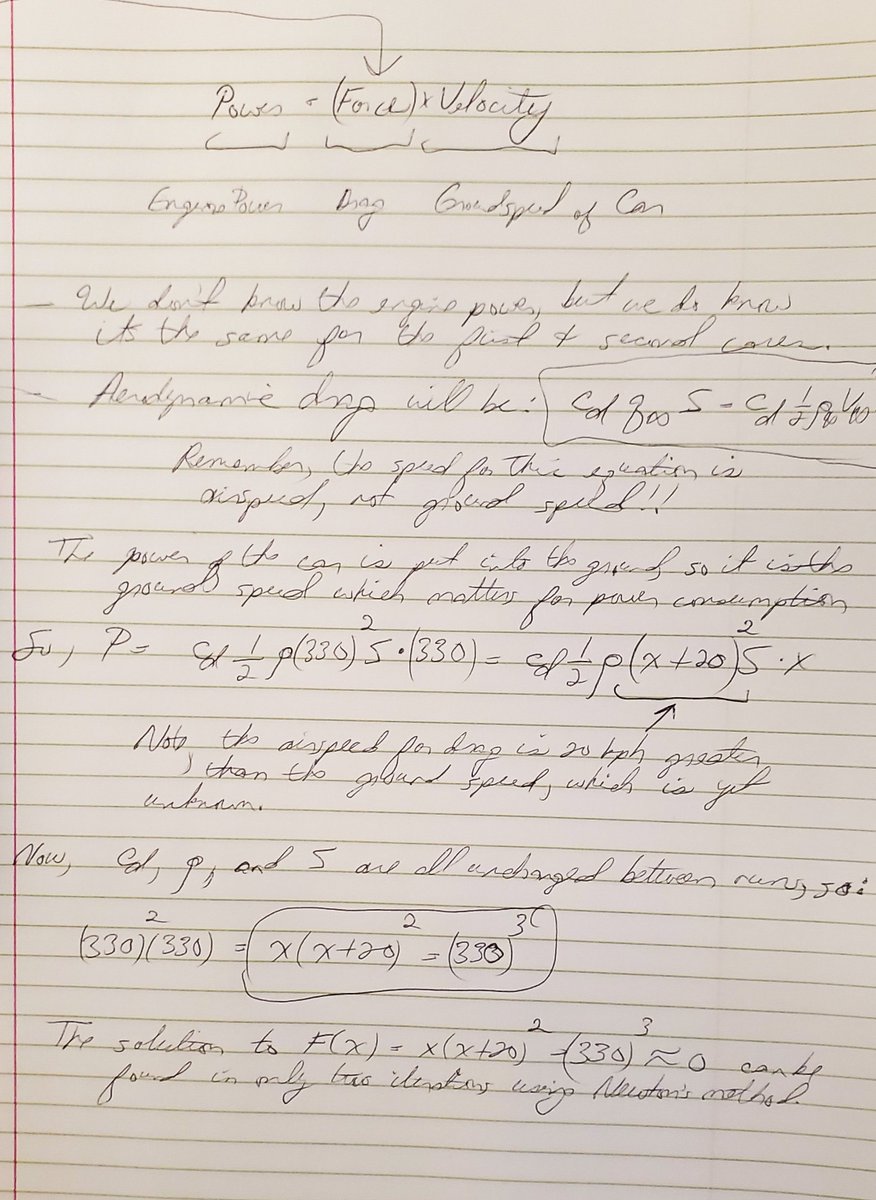 Power = (Force) x Velocity
Engine Power Drag Groundspeed of Car
– We don't know the engine power, but we do know
its the same for the first & second cases.
– Aerodynamic drag will be: Cd q∞ S = Cd ½ρ∞V∞
Remember, the speed for this equation is
airspeed, not ground speed!!
The power of the car is put into the ground, so it is the
ground speed which matters for power consumption
So, P = Cd ½ ρ(330)² S · (330) = Cd ½ ρ(x+20)² S · x
Note, the airspeed for drag is 20 kph greater
than the ground speed, which is yet
unknown.
Now, Cd, ρ, and S are all unchanged between runs, so:
(330)²(330) = x(x+20)² = (330)³
The solution to F(x) = x(x+20)² - (330)³ ≈ 0 can be
found in only two iterations using Newton's method.